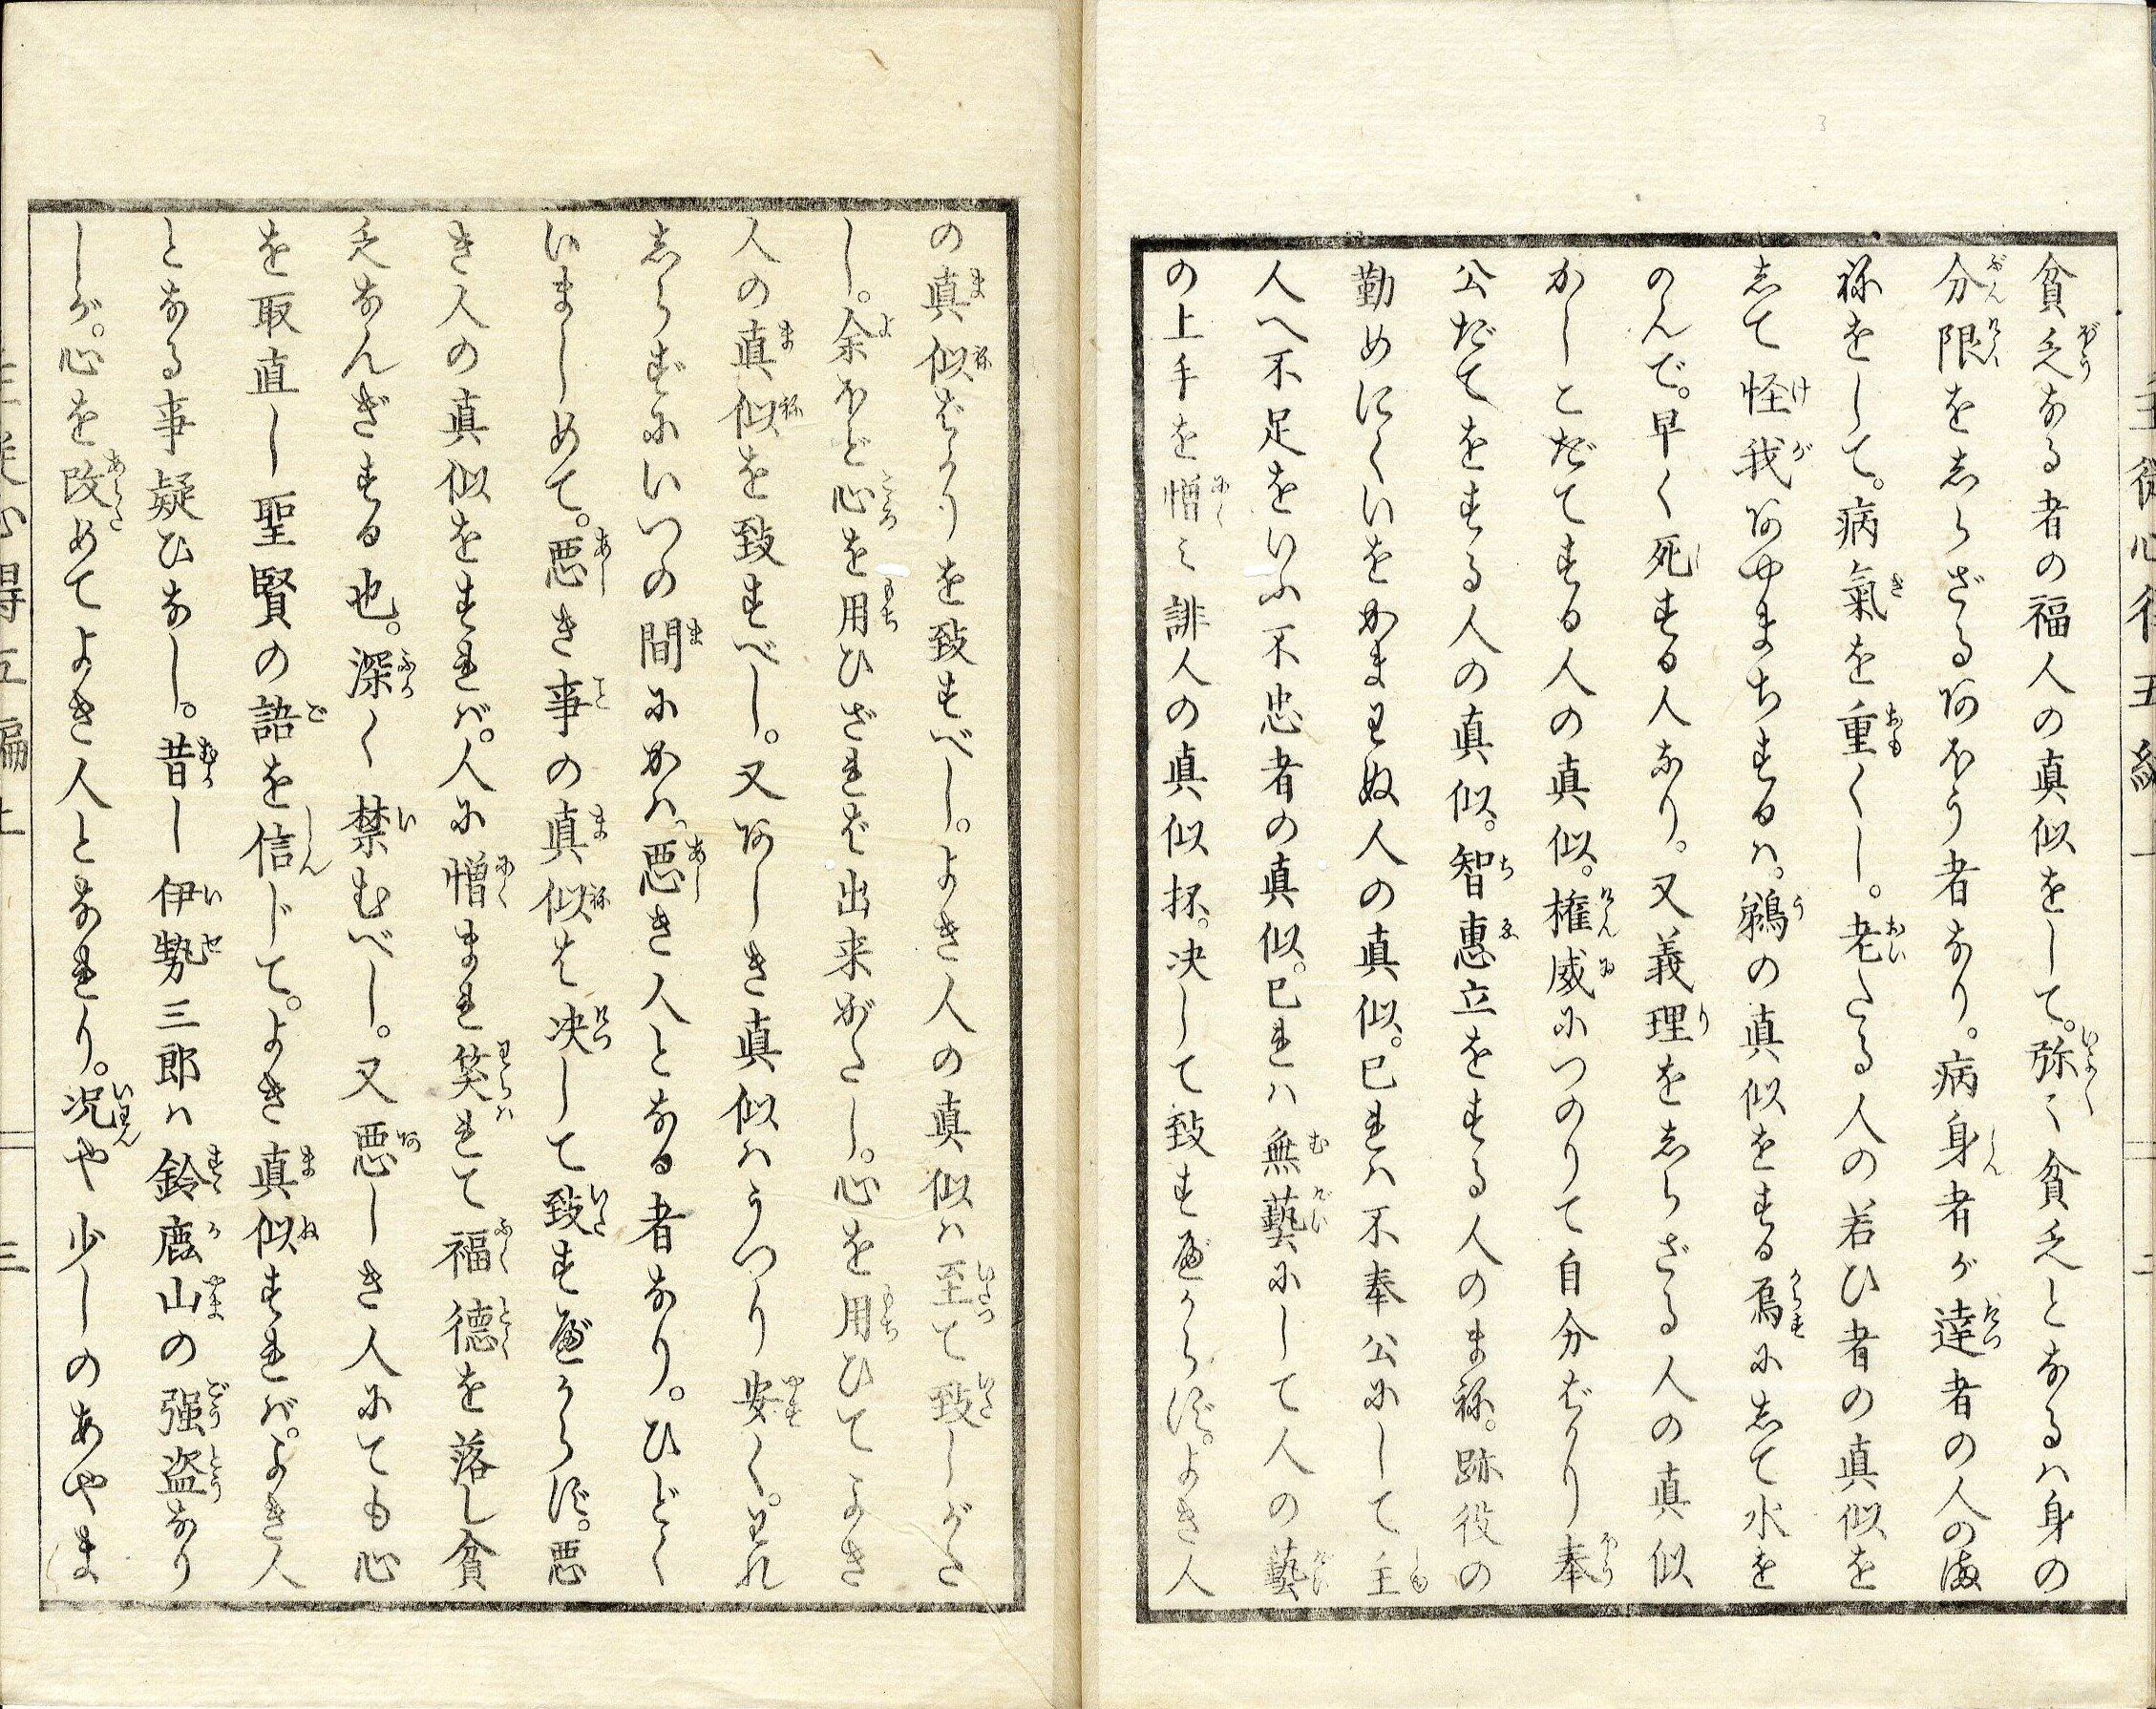 貧乏なる者の福人の真似をして。弥〻貧乏となるハ身の
分限をしらざるあほう者なり。病身者が達者の人のま
ねをして。病氣を重くし。老たる人の若ひ者の真似を
して怪我あやまちするハ。鵜の真似をする烏にして水を
のんで。早く死する人なり。又義理をしらざる人の真似
かしこだてする人の真似。権威につのりて自分ばかり奉
公だてをする人の真似。智惠立をする人のまね。跡役の
勤めにくいをかまわぬ人の真似。己れハ不奉公にして主
人へ不足をいふ不忠者の真似。己れハ無藝にして人の藝
の上手を憎ミ誹人の真似抔。决して致すべからず。よき人
の真似ばかりを致すべし。よき人の真似ハ至て致しがた
し。余ほど心を用ひざれば出来がたし。心を用ひてよき
人の真似を致すべし。又あしき真似ハうつり安く。われ
しらずにいつの間にかハ。悪き人となる者なり。ひどく
いましめて。悪き事の真似は决して致すべからず。悪
き人の真似をすれバ。人に憎まれ笑れて福徳を落し貧
乏なんぎする也。深く禁むべし。又悪しき人にても心
を取直し聖賢の語を信じて。よき真似すれバ。よき人
となる事疑ひなし。昔し伊勢三郎ハ鈴鹿山の强盗なり
しが。心を改めてよき人となれり。况や少しのあやま